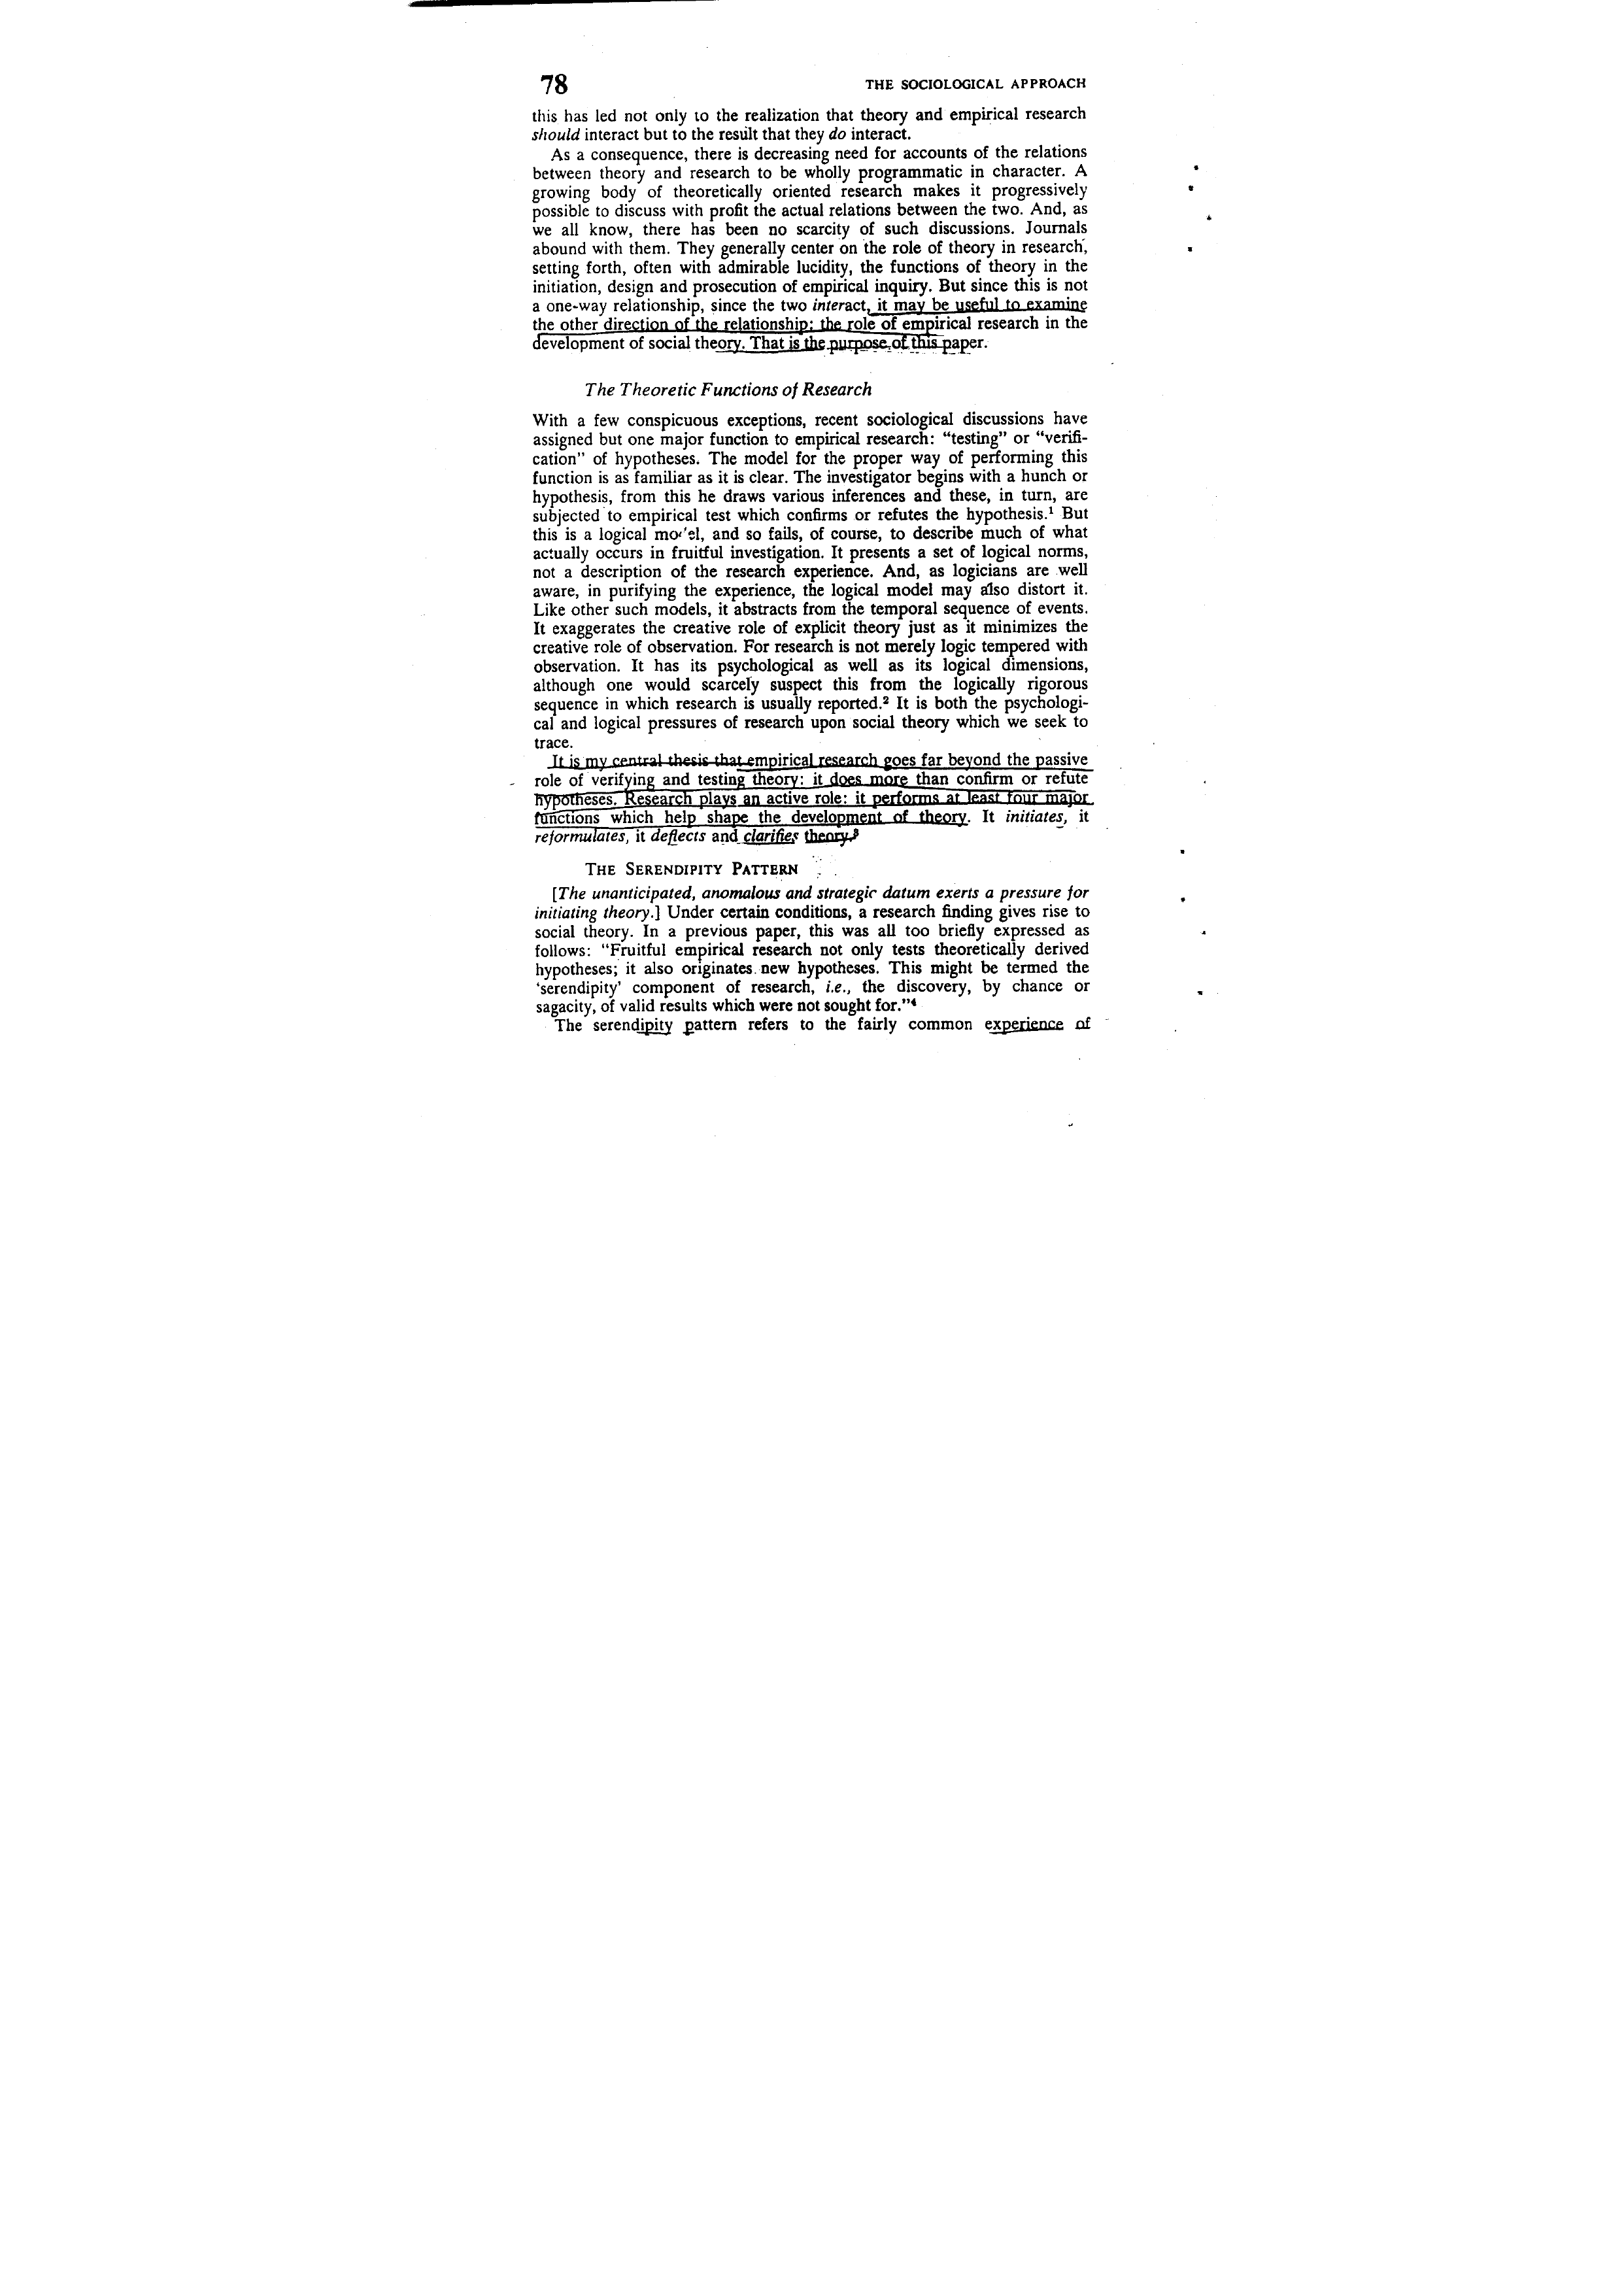 78 THE SOCIOLOGICAL APPROACH
this has led not only to the realization that theory and empirical research
should interact but to the result that they do interact.
As a consequence, there is decreasing need for accounts of the relations
between theory and research to be wholly programmatic in character. A
growing body of theoretically oriented research makes it progressively
possible to discuss with profit the actual relations between the two. And, as
we all know, there has been no scarcity of such discussions. Journals
abound with them. They generally center on the role of theory in research,
setting forth, often with admirable lucidity, the functions of theory in the
initiation, design and prosecution of empirical inquiry. But since this is not
a one-way relationship, since the two interact, it may be useful to examine
the other direction of the relationship: the role of empirical research in the
development of social theory. That is the purpose of this paper.
The Theoretic Functions of Research
With a few conspicuous exceptions, recent sociological discussions have
assigned but one major function to empirical research: “testing” or “verifi-
cation” of hypotheses. The model for the proper way of performing this
function is as familiar as it is clear. The investigator begins with a hunch or
hypothesis, from this he draws various inferences and these, in turn, are
subjected to empirical test which confirms or refutes the hypothesis.¹ But
this is a logical model, and so fails, of course, to describe much of what
actually occurs in fruitful investigation. It presents a set of logical norms,
not a description of the research experience. And, as logicians are well
aware, in purifying the experience, the logical model may also distort it.
Like other such models, it abstracts from the temporal sequence of events.
It exaggerates the creative role of explicit theory just as it minimizes the
creative role of observation. For research is not merely logic tempered with
observation. It has its psychological as well as its logical dimensions,
although one would scarcely suspect this from the logically rigorous
sequence in which research is usually reported.² It is both the psychologi-
cal and logical pressures of research upon social theory which we seek to
trace.
It is my central thesis that empirical research goes far beyond the passive
role of verifying and testing theory: it does more than confirm or refute
hypotheses. Research plays an active role: it performs at least four major
functions which help shape the development of theory. It initiates, it
reformulates, it deflects and clarifies theory.³
THE SERENDIPITY PATTERN
[The unanticipated, anomalous and strategic datum exerts a pressure for
initiating theory.] Under certain conditions, a research finding gives rise to
social theory. In a previous paper, this was all too briefly expressed as
follows: “Fruitful empirical research not only tests theoretically derived
hypotheses; it also originates new hypotheses. This might be termed the
‘serendipity’ component of research, i.e., the discovery, by chance or
sagacity, of valid results which were not sought for.”⁴
The serendipity pattern refers to the fairly common experience of